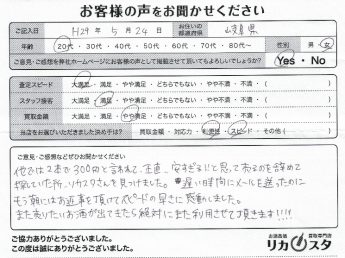 お客様の声をお聞かせください
ご記入日 H29年 5月 24日 お住いの都道府県 岐阜県
年齢 20代・30代・40代・50代・60代・70代・80代〜 性別 男・女
ご意見・ご感想を弊社ホームページにお客様の声として掲載させて頂いてもよろしいでしょうか? Yes・No
査定スピード 大満足・満足・やや満足・どちらでもない・やや不満・不満
スタッフ接客 大満足・満足・やや満足・どちらでもない・やや不満・不満
買取金額 大満足・満足・やや満足・どちらでもない・やや不満・不満
当店をお選びいただきました決め手は? 買取金額・対応力・利便性・スピード・その他( )
ご意見・ご感想などぜひお聞かせください
他店は2本で300円と言われて、正直、安すぎる!と思って売るのを辞めて
探していた所、リカスタさんを見つけました。遅い時間にメールを送ったのに
すぐ朝にはお返事を頂けてスピードの早さに感動しました。
またあげたいお酒が出てきたら絶対にまた利用させて頂きます!!!!
ご協力ありがとうございました。
この度は誠にありがとうございました。
お酒高価買取専門店
リカスタ